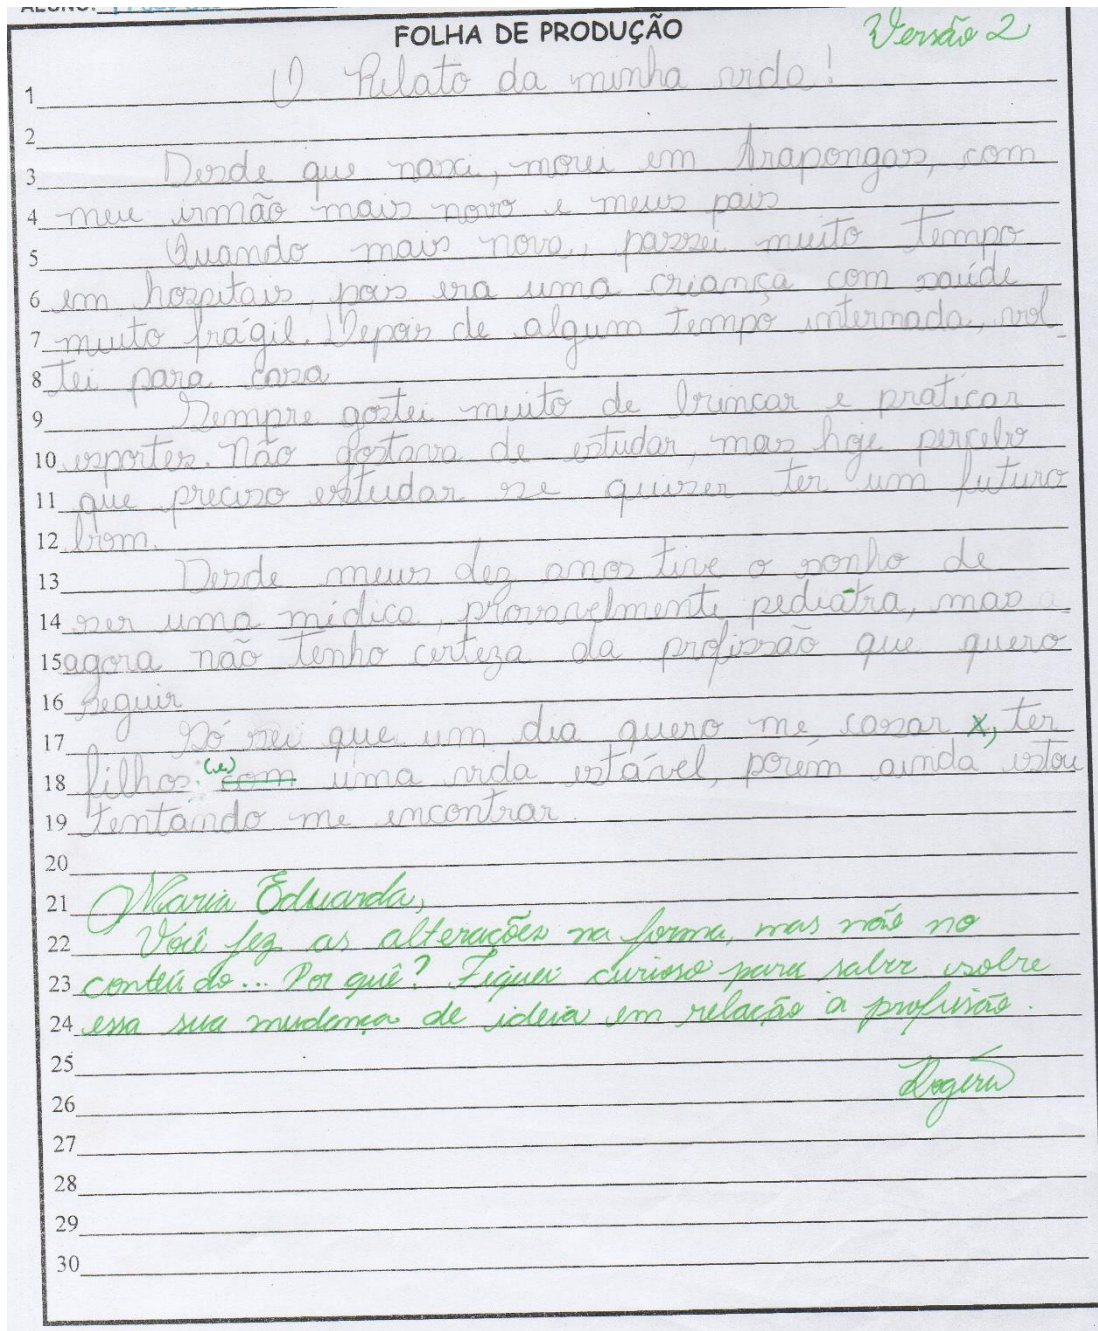 ALUNO:
FOLHA DE PRODUÇÃO Versão 2
1 O Relato da minha vida!
2
3 Desde que nasci, morei em Arapongas, com
4 meu irmão mais novo e meus pais
5 Quando mais nova, passei muito tempo
6 em hospitais, pois era uma criança com saúde
7 muito frágil. Depois de algum tempo internada, vol-
8 tei para casa
9 Sempre gostei muito de brincar e praticar
10 esportes. Não gostava de estudar, mas hoje percebo
11 que preciso estudar se quiser ter um futuro
12 bom.
13 Desde meus dez anos tive o sonho de
14 ser uma médica, provavelmente pediatra, mas
15 agora não tenho certeza da profissão que quero
16 seguir
17 Só sei que um dia quero me casar x, ter
18 filhos (e) com uma vida estável, porém ainda estou
19 tentando me encontrar.
20
21 Maria Eduarda,
22 Você fez as alterações na forma, mas não no
23 conteúdo... Por quê? Fiquei curioso para saber sobre
24 essa sua mudança de ideia em relação à profissão.
25
26 Rogério
27
28
29
30